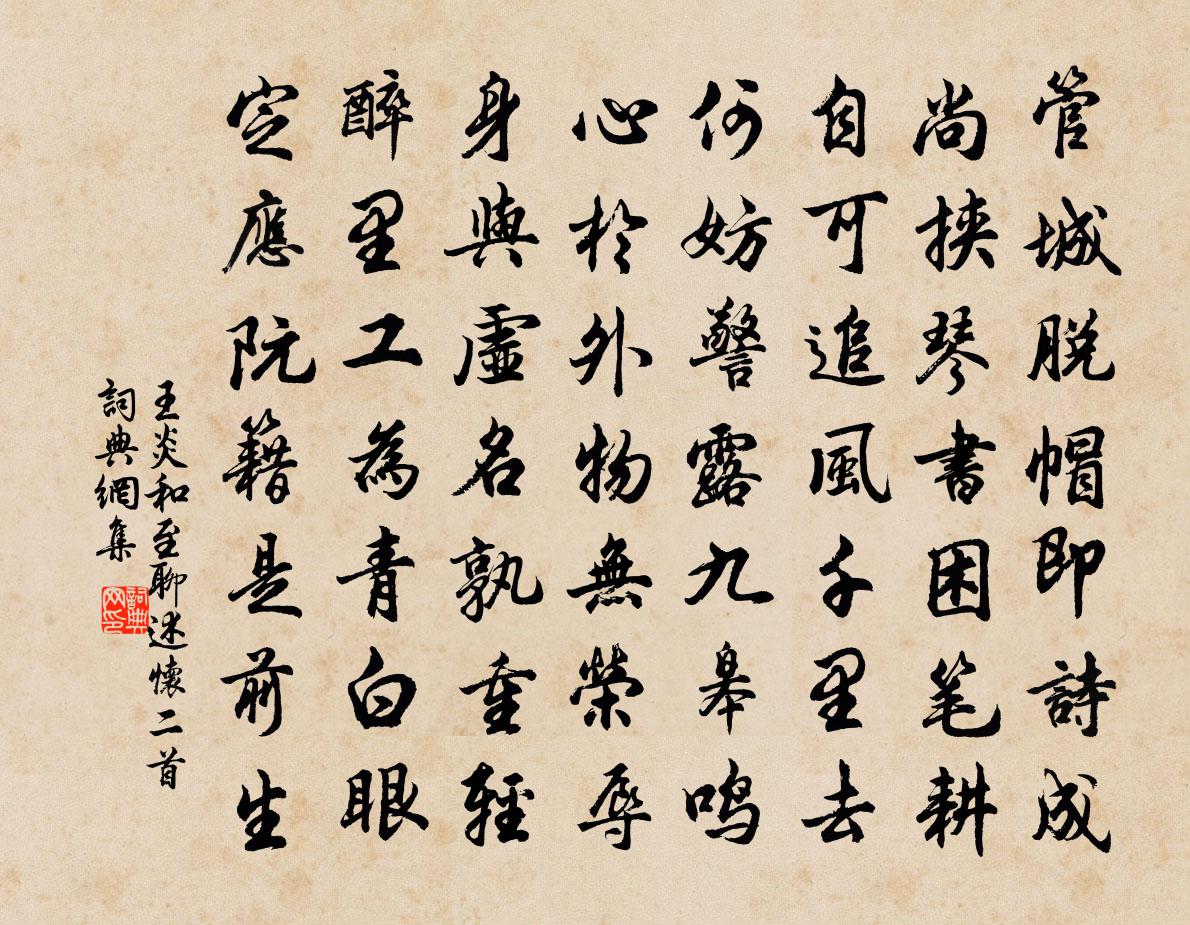 管城脱帽即詩成
尚挾琴書困笔耕
自可追風千里去
何妨警露九皋鳴
心於外物無榮辱
身與虛名孰重輕
醉里工為青白眼
定應阮籍是前生
王炎和至聊述懷二首
詞典網集
詞典网印